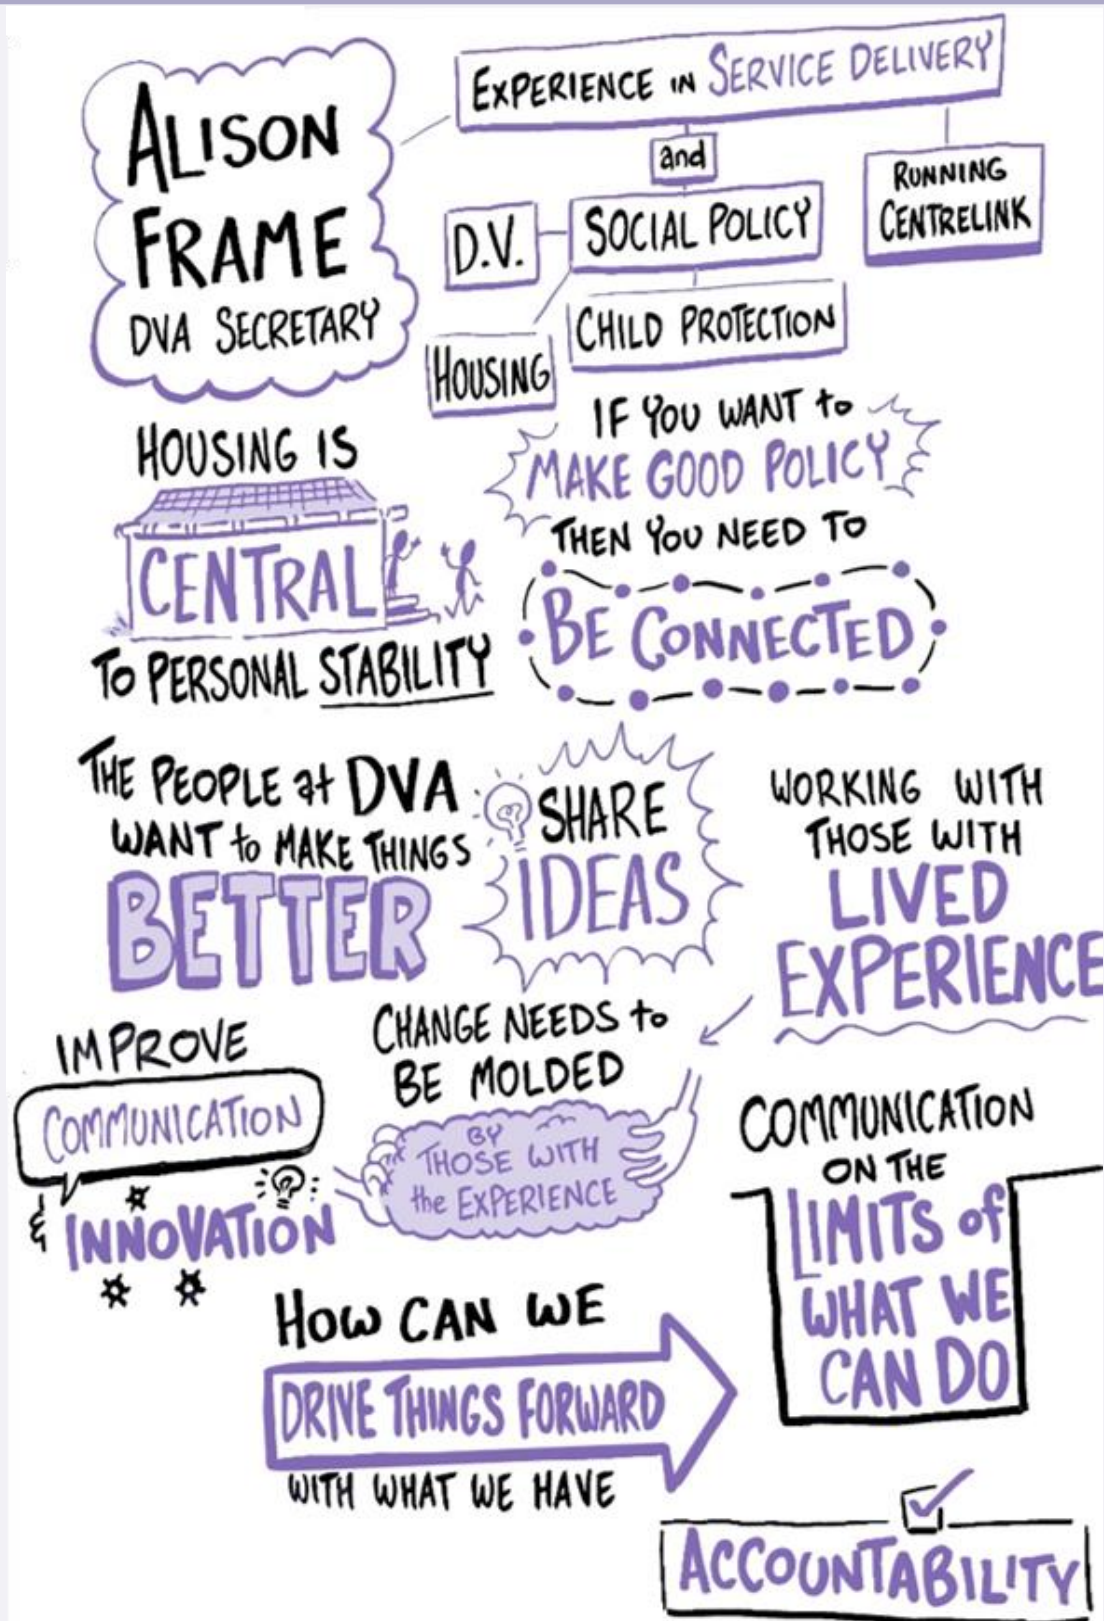 ALISON
FRAME
DVA SECRETARY
EXPERIENCE IN SERVICE DELIVERY
and
RUNNING
CENTRELINK
D.V.
SOCIAL POLICY
CHILD PROTECTION
HOUSING
HOUSING IS
CENTRAL
TO PERSONAL STABILITY
IF YOU WANT to
MAKE GOOD POLICY
THEN YOU NEED TO
BE CONNECTED
THE PEOPLE at DVA
WANT to MAKE THINGS
BETTER
SHARE
IDEAS
WORKING WITH
THOSE WITH
LIVED
EXPERIENCE
IMPROVE
COMMUNICATION
& INNOVATION
CHANGE NEEDS to
BE MOLDED
BY
THOSE WITH
the EXPERIENCE
COMMUNICATION
ON THE
LIMITS of
WHAT WE
CAN DO
HOW CAN WE
DRIVE THINGS FORWARD
WITH WHAT WE HAVE
ACCOUNTABILITY